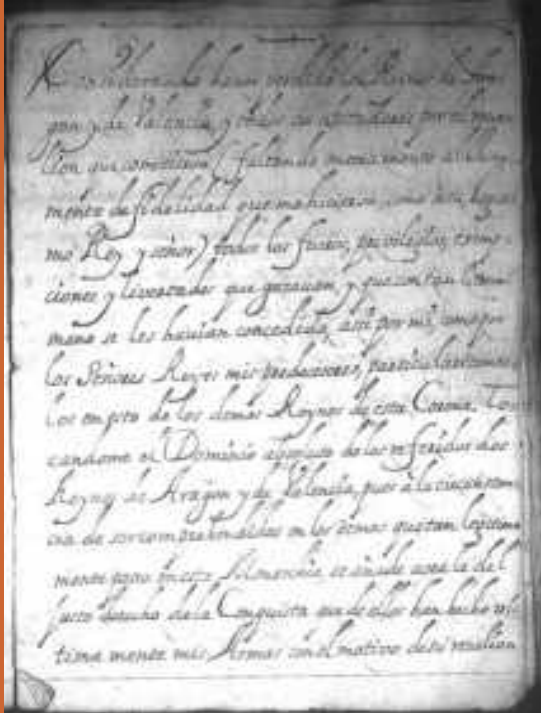 Considerando haver perdido los Reinos de Ara-
gon y de Valencia, y todos sus abitadores por el
lion que cometieron (faltando
mento de fidelidad que me hicieron como a su legiti
mo Rey y señor) todos los fueros, privilegios, exemp-
ciones y livertades que gozavan, y que con tan libera
mano se les havian concedido, assi por mi como por
los Señores Reyes mis predecesores, particularizando
los en esto de los demas Reynos de esta Corona. To-
candome el Dominio absoluto de los referidos dos
Reynos de Aragon y de Valencia, pues a la circunstan
cia de ser comprehendidos en los demas que tan legitima
mente poseo en esta Monarchia, se añade aora la del
justo derecho de la Conquista que de ellos han hecho ul-
tima mente mis Armas con el motivo de su revelion